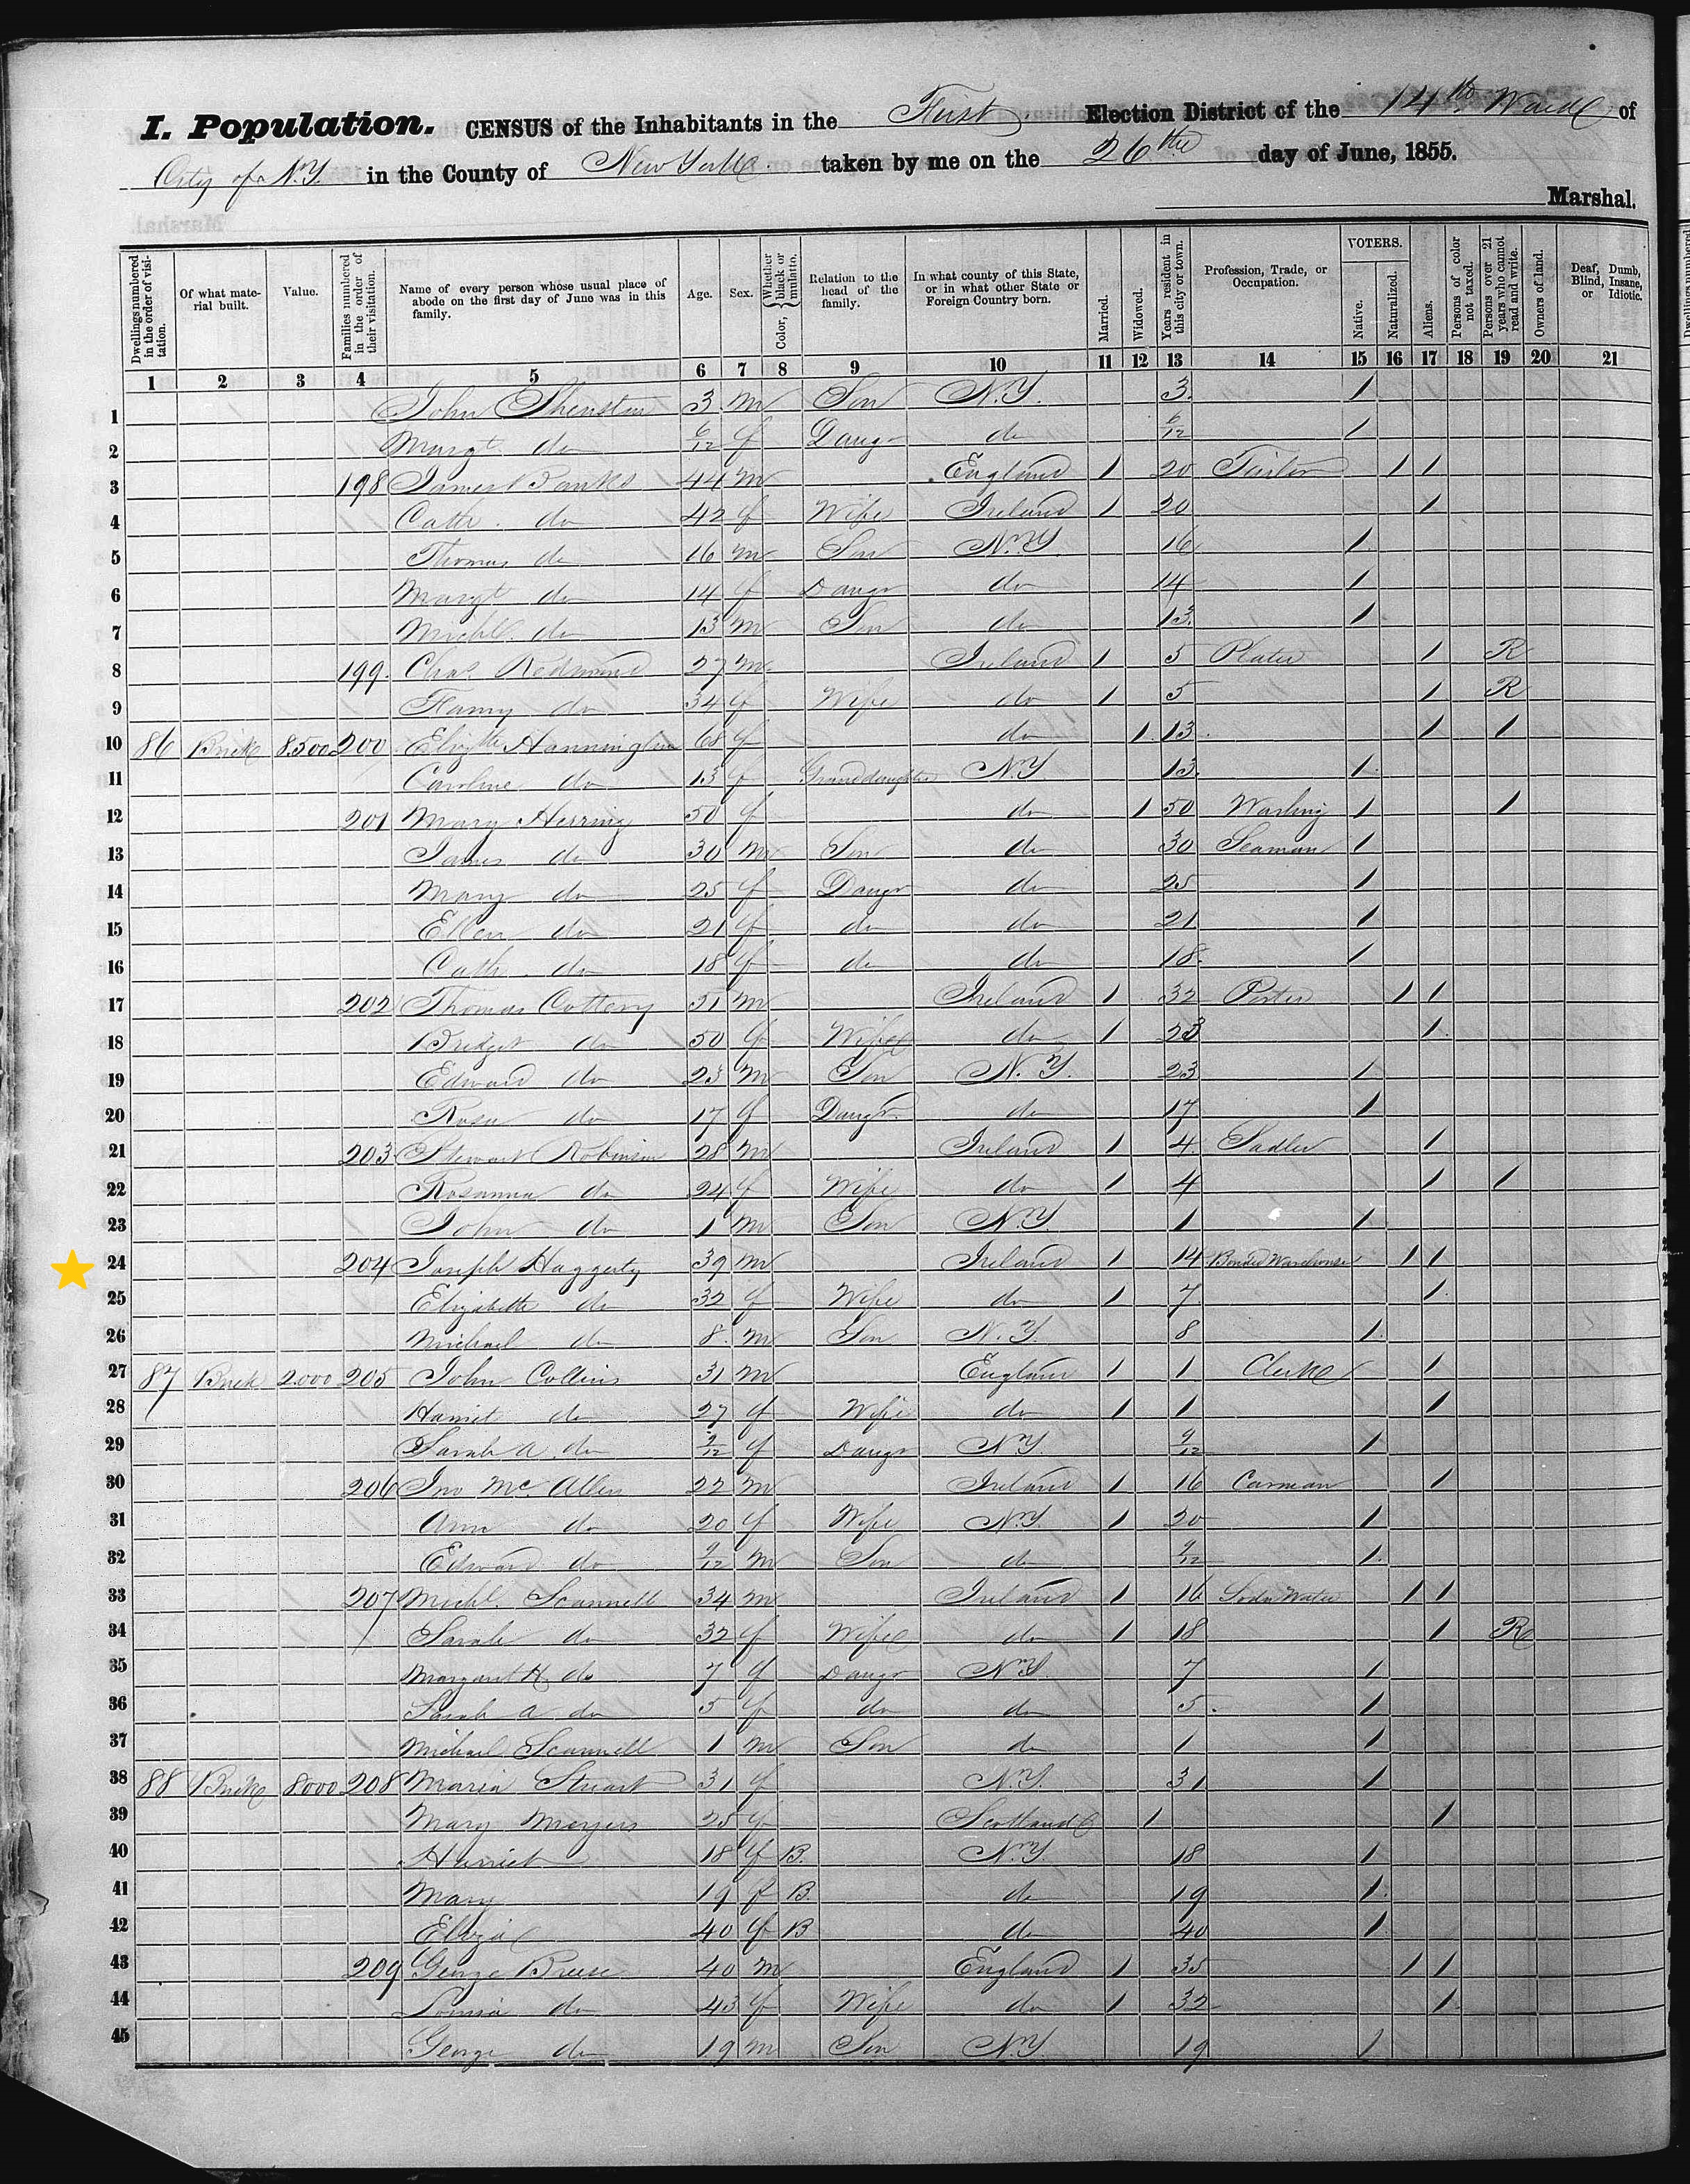 I. Population. CENSUS of the Inhabitants in the First Election District of the 14th Ward of
City of N.Y. in the County of New York taken by me on the 26th day of June, 1855.
Marshal.
Dwellings numbered in the order of visitation. Of what material built. Value. Families numbered in the order of their visitation. Name of every person whose usual place of abode on the first day of June was in this family. Age. Sex. Color, Whether black or mulatto. Relation to the head of the family. In what county of this State, or in what other State or Foreign Country born. Married. Widowed. Years resident in this city or town. Profession, Trade, or Occupation. VOTERS. Native. Naturalized. Aliens. Persons of color not taxed. Persons over 21 years who cannot read and write. Owners of land. Deaf, Dumb, Blind, Insane, or Idiotic.
1 2 3 4 5 6 7 8 9 10 11 12 13 14 15 16 17 18 19 20 21
1 John 3 m Son N.Y. 3 1
2 Margt do 6/12 f Daugr do 6/12 1
3 198 James Banks 44 m England 1 20 Tailor 1 1
4 Cath. do 42 f Wife Ireland 1 20 1
5 Thomas do 16 m Son N.Y. 16 1
6 Margt do 14 f Daugr do 14 1
7 Michl. do 13 m Son do 13 1
8 199 Chas. Redmond 27 m Ireland 1 5 Plater 1 R
9 Fanny do 34 f Wife do 1 5 1 R
10 86 Brick 8.500 200 Elizth Hannington 68 f do 1 13 1 1
11 Caroline do 13 f Granddaughter N.Y 13 1
12 201 Mary Herring 50 f do 1 50 Washing 1 1
13 James do 30 m Son do 30 Seaman 1
14 Mary do 25 f Daugr do 25 1
15 Ellen do 21 f do do 21 1
16 Cath. do 18 f do do 18 1
17 202 Thomas Cottery 51 m Ireland 1 32 Porter 1 1
18 Bridget do 50 f Wife do 1 23 1
19 Edward do 23 m Son N.Y. 23 1
20 Rosa do 17 f Daugr. do 17 1
21 203 Stewart Robinson 28 m Ireland 1 4 Sadler 1
22 Rosanna do 24 f Wife do 1 4 1 1
23 John do 1 m Son N.Y. 1 1
24 204 Joseph Haggerty 39 m Ireland 1 14 Bonded Warehouse 1 1
25 Elizabeth do 32 f Wife do 1 7 1
26 Michael do 8 m Son N.Y. 8 1
27 87 Brick 2.000 205 John Collins 31 m England 1 1 Clerk 1
28 Harriet do 27 f Wife do 1 1 1
29 Sarah A. do 9/12 f Daugr N.Y. 9/12 1
30 206 Jno McAllen 22 m Ireland 1 16 Carman 1
31 Ann do 20 f Wife N.Y. 1 20 1
32 Edward do 9/12 m Son do 9/12 1
33 207 Michl. Scannell 34 m Ireland 1 16 Soda Water 1 1
34 Sarah do 32 f Wife do 1 18 1 R
35 Margaret H do 7 f Daugr N.Y. 7 1
36 Sarah A do 5 f do do 5 1
37 Michael Scannell 1 m Son do 1 1
38 88 Brick 8000 208 Maria Stuart 31 f N.Y. 31 1
39 Mary Meyers 25 f Scotland 1 1
40 Harriet 18 f B. N.Y. 18 1
41 Mary 19 f B. do 19 1
42 Eliza 40 f B do 40 1
43 209 George Breese 40 m England 1 35 1 1
44 Louisa do 43 f Wife do 1 32 1
45 George do 19 m Son N.Y. 19 1